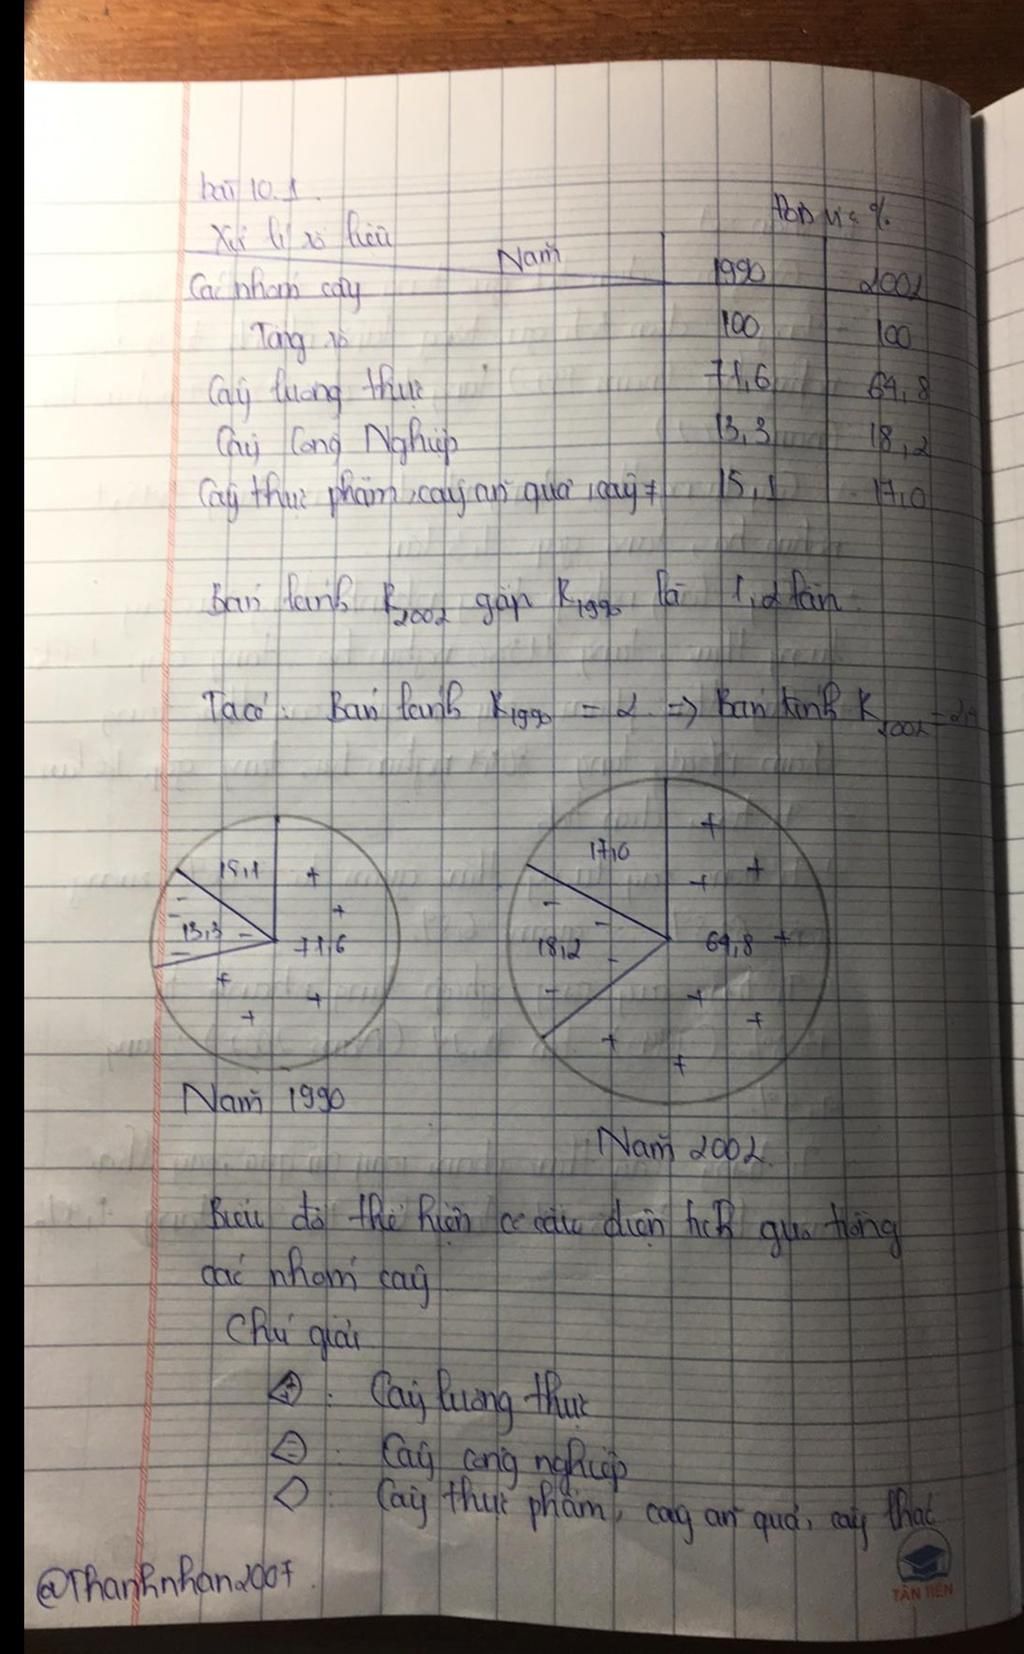 bài 10.1.
Xử lí số liệu
Đơn vị: %
Năm
Các nhóm cây 1990 2002
Tổng số 100 100
Cây lương thực 71,6 64,8
Cây Công Nghiệp 13,3 18,2
Cây thực phẩm, cây ăn quả, cây ≠ 15,1 17,0
Bán kính R2002 gấp R1990 là 1,2 lần
Ta có: Bán kính R1990 = 2 => Bán kính R2002 =
15,1 +
+
13,3 71,6
+ +
+
17,0 + +
+
18,2 64,8 +
+ +
+ +
Năm 1990
Năm 2002.
Biểu đồ thể hiện cơ cấu diện tích gieo trồng
các nhóm cây
Chú giải
+ : Cây lương thực
- : Cây công nghiệp
: Cây thực phẩm, cây ăn quả, cây khác
@Thanhnhan2007.
TÂN TIẾN